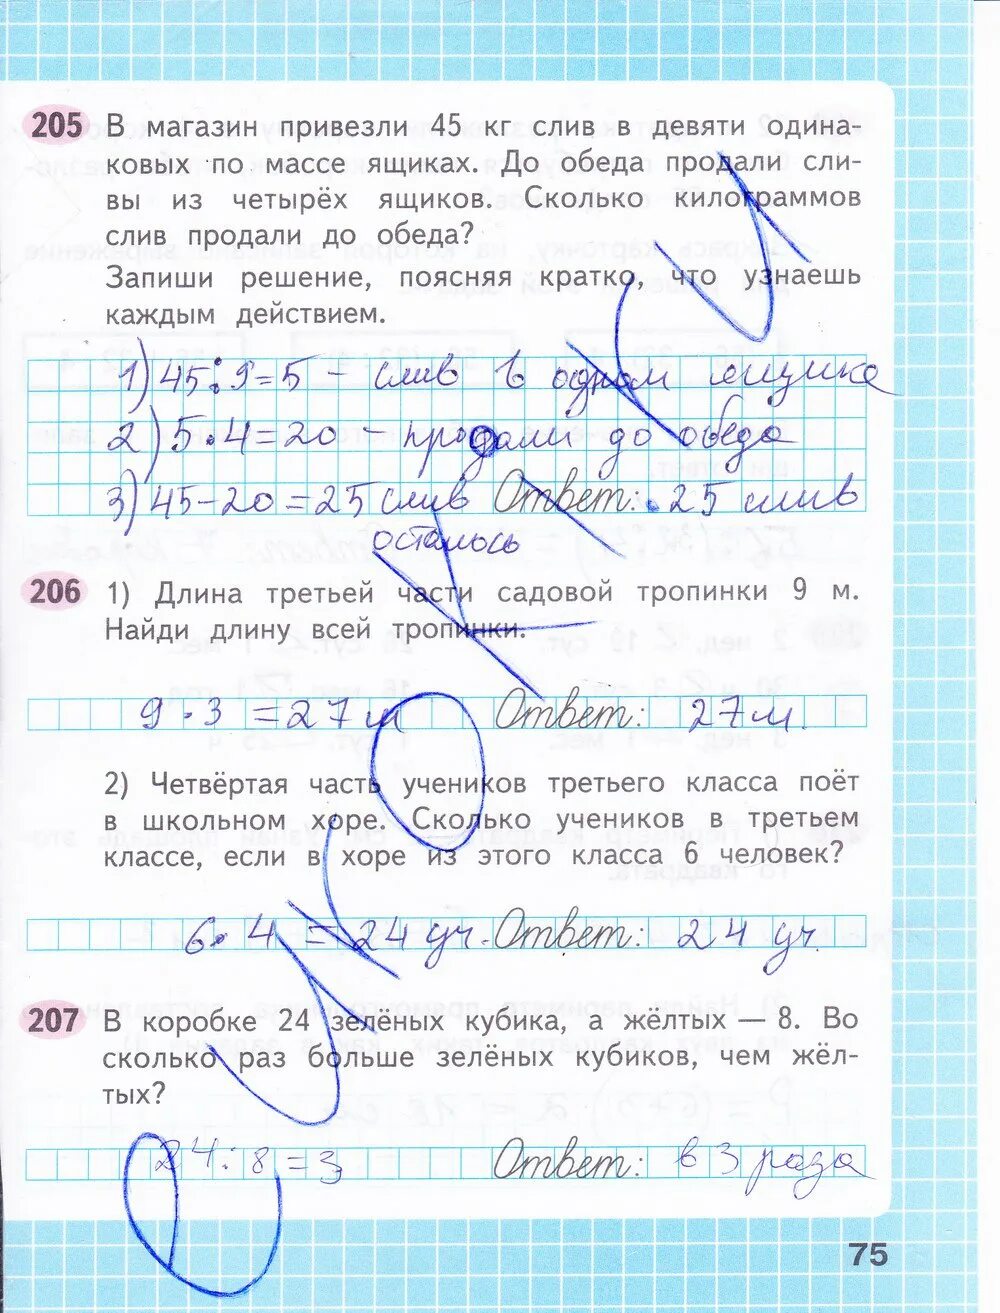 205 В магазин привезли 45 кг слив в девяти одина-
ковых по массе ящиках. До обеда продали сли-
вы из четырёх ящиков. Сколько килограммов
слив продали до обеда?
Запиши решение, поясняя кратко, что узнаешь
каждым действием.
1) 45:9=5 – слив в одном ящике
2) 5·4=20 – продали до обеда
3) 45-20=25 слив Ответ: 25 слив
осталось
206 1) Длина третьей части садовой тропинки 9 м.
Найди длину всей тропинки.
9·3=27м Ответ: 27м.
2) Четвёртая часть учеников третьего класса поёт
в школьном хоре. Сколько учеников в третьем
классе, если в хоре из этого класса 6 человек?
6·4=24 уч. Ответ: 24 уч.
207 В коробке 24 зелёных кубика, а жёлтых — 8. Во
сколько раз больше зелёных кубиков, чем жёл-
тых?
24:8=3 Ответ: в 3 раза
75